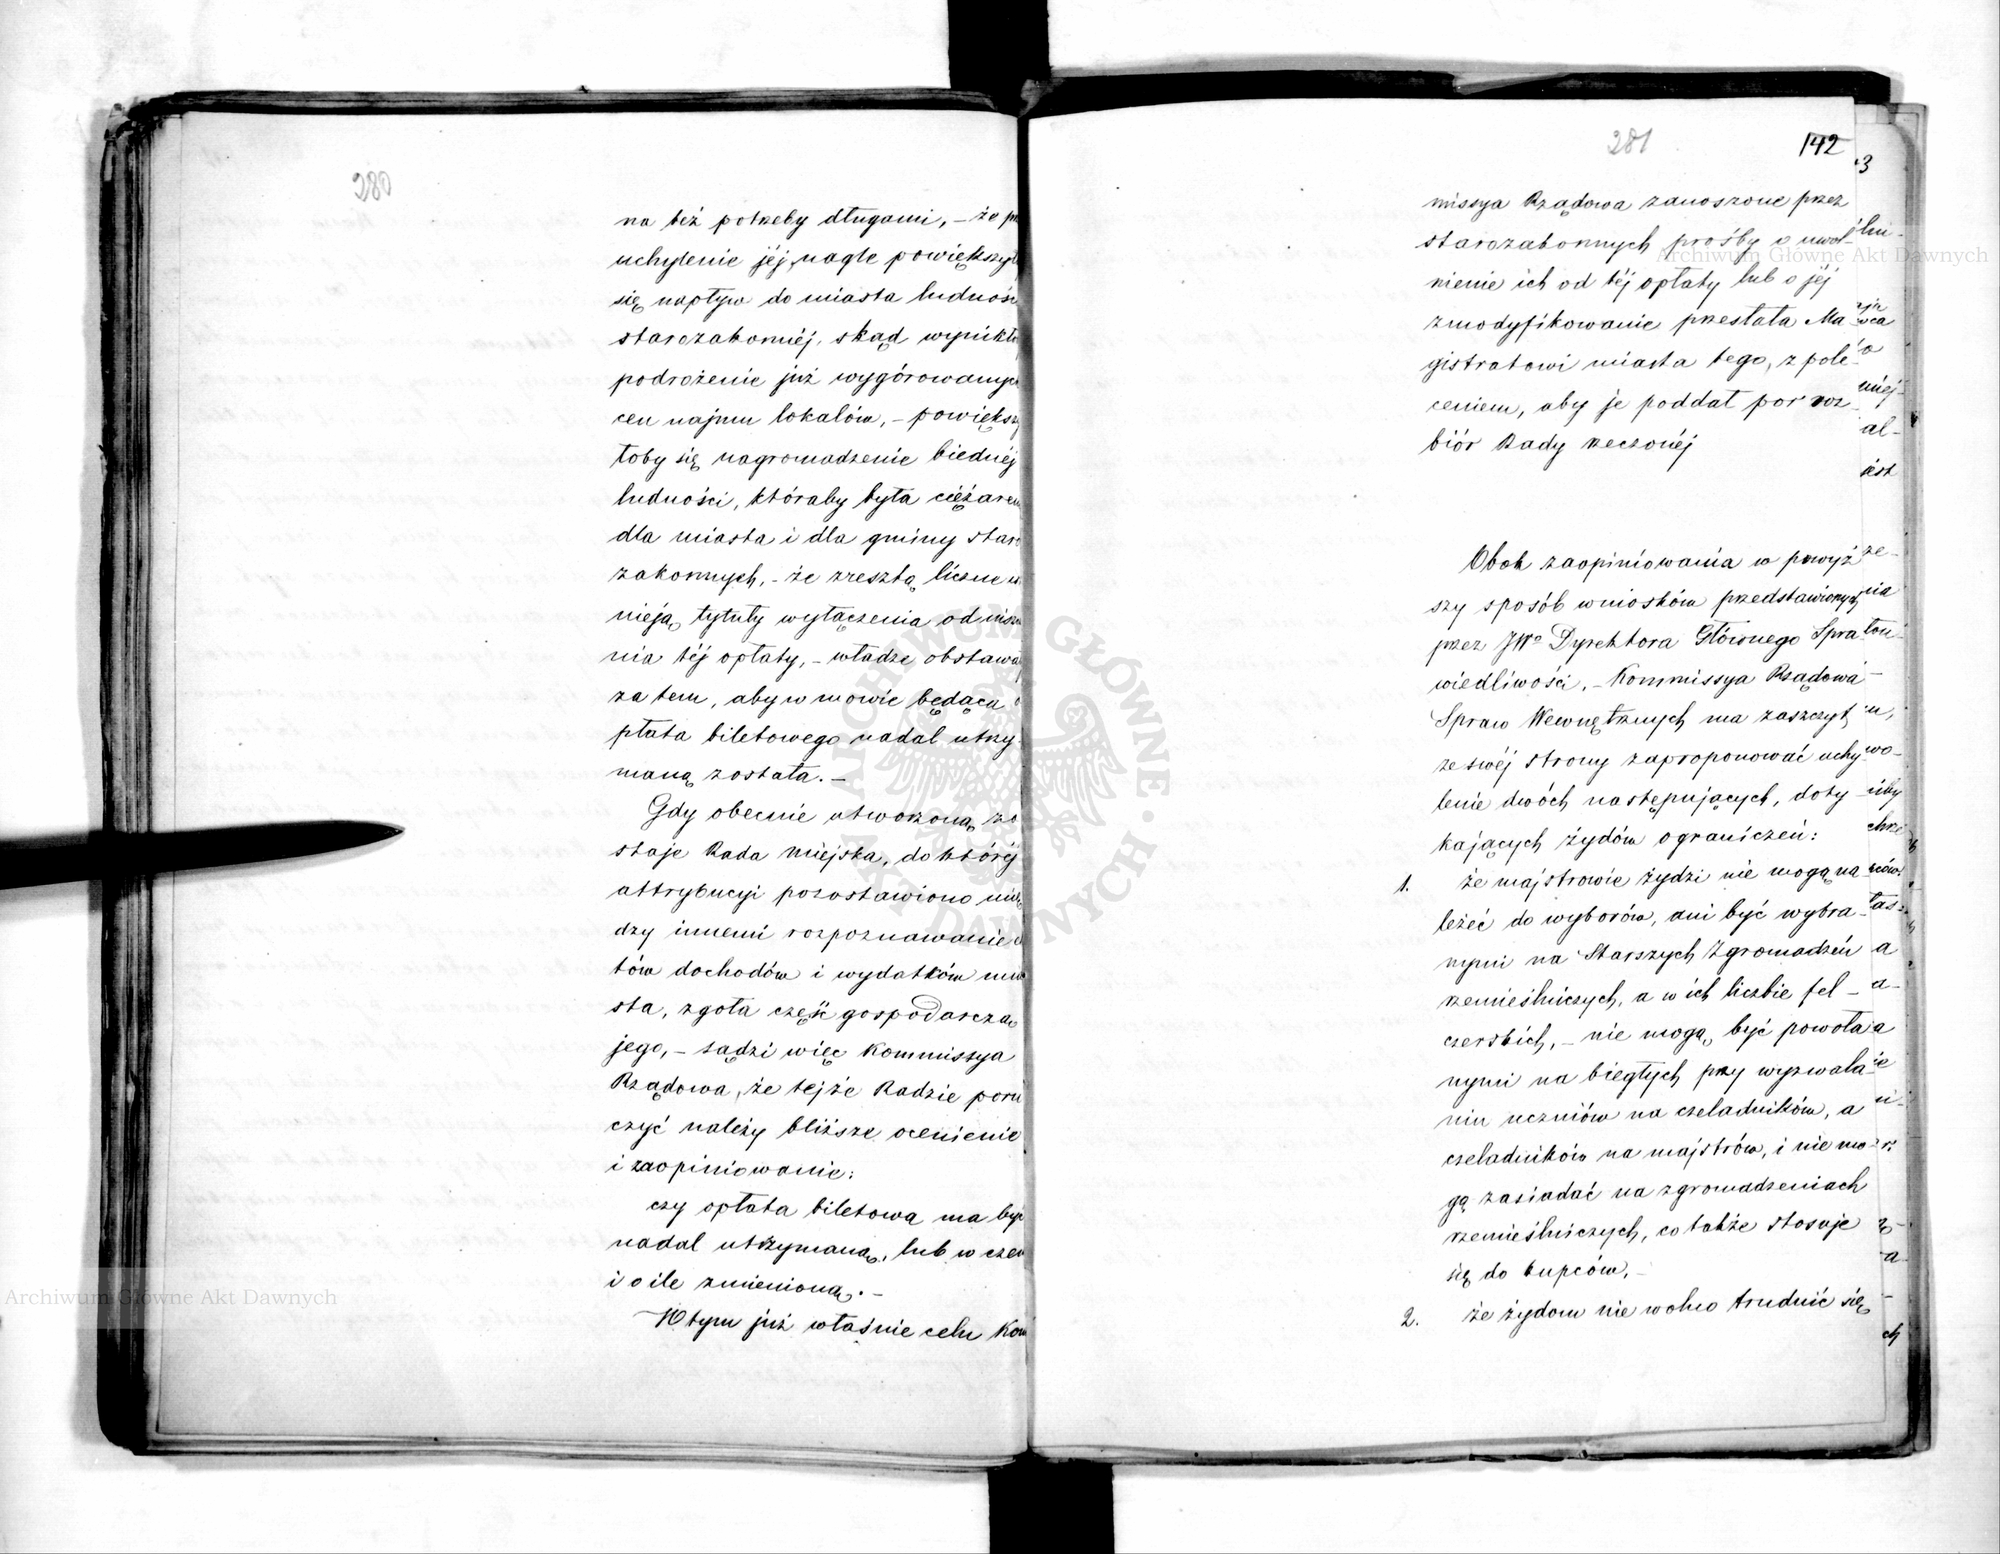 280
na też potrzeby długami, – że
uchylenie jéj nagle powiększył
się napływ do miasta ludnośc
starozakonnéj, skąd wynikło
podrożenie już wygórowanych
cen najmu lokalów, – powiększy
łoby się nagromadzenie biednéj
ludności, któraby była ciężarem
dla miasta i dla gminy staro
zakonnych, – że zresztą liczne
nieją tytuły wyłączenia od
nia téj opłaty, – władze obstawa
za tem, aby w mowie będąca o
płata biletowego nadal utrzy
maną została. –
Gdy obecnie utworzoną zo
staje Rada Miejska, do któréj
attrybucyi pozostawiono mię
dzy innemi rozpoznawanie
tów dochodów i wydatków mia
sta, zgoła część gospodarczą
jego, – sądzi więc Kommissya
Rządowa, że tejże Radzie poru
czyć należy bliższe ocenienie
i zaopiniowanie:
czy opłata biletowa ma być
nadal utrzymaną, lub w czem
i o ile zmienioną. –
W tym już właśnie celu Kom
281
142
missya Rządowa zanoszone przez
starozakonnych prośby o uwol-
nienie ich od téj opłaty lub o jéj
zmodyfikowanie przesłała Ma
gistratowi miasta tego, z pole
ceniem, aby je poddał pod roz
biór Rady rzeczonéj
Obok zaopiniowania w powyż
szy sposób wniosków przedstawionych
przez JWo Dyrektora Głównego Spra
wiedliwości, – Kommissya Rządowa
Spraw Wewnętrznych ma zaszczyt
ze swéj strony zaproponować uchy
lenie dwóch następujących, doty
kających żydów ograniczeń:
1. że majstrowie żydzi nie mogą na
leżeć do wyborów, ani być wybra
nymi na Starszych Zgromadzeń
rzemieślniczych, a w ich liczbie fel –
czerskich, – nie mogą być powoła
nymi na biegłych przy wyzwala
niu uczniów na czeladników, a
czeladników na majstrów, i nie mo
gą zasiadać na zgromadzeniach
rzemieślniczych, co także stosuje
się do kupców, –
2. że żydom nie wolno trudnić się
Archiwum Główne Akt Dawnych
Archiwum Główne Akt Dawnych
ARCHIWUM GŁÓWNE AKT DAWNYCH